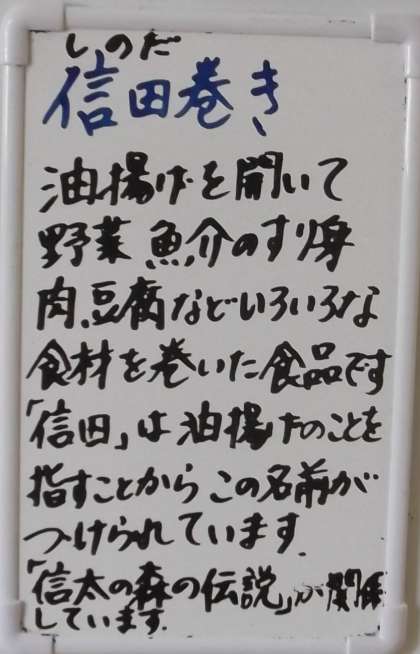 しのだ
信田巻き
油揚げを開いて
野菜 魚介のすり身
肉、豆腐などいろいろな
食材を巻いた食品です
「信田」は油揚げのことを
指すことからこの名前が
つけられています.
「信太の森の伝説」が関係
しています.